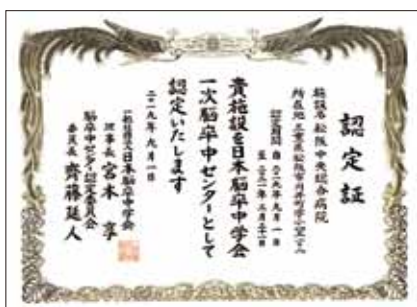 認定証
施設名 松阪中央総合病院
所在地 三重県松阪市川井町字小望一〇二
認定期間 自 二〇一九年九月一日
至 二〇二一年三月三十一日
貴施設を日本脳卒中学会
一次脳卒中センターとして
認定いたします
二〇一九年九月一日
一般社団法人日本脳卒中学会
理事長 宮本 享
脳卒中センター認定委員会
委員長 齊藤延人